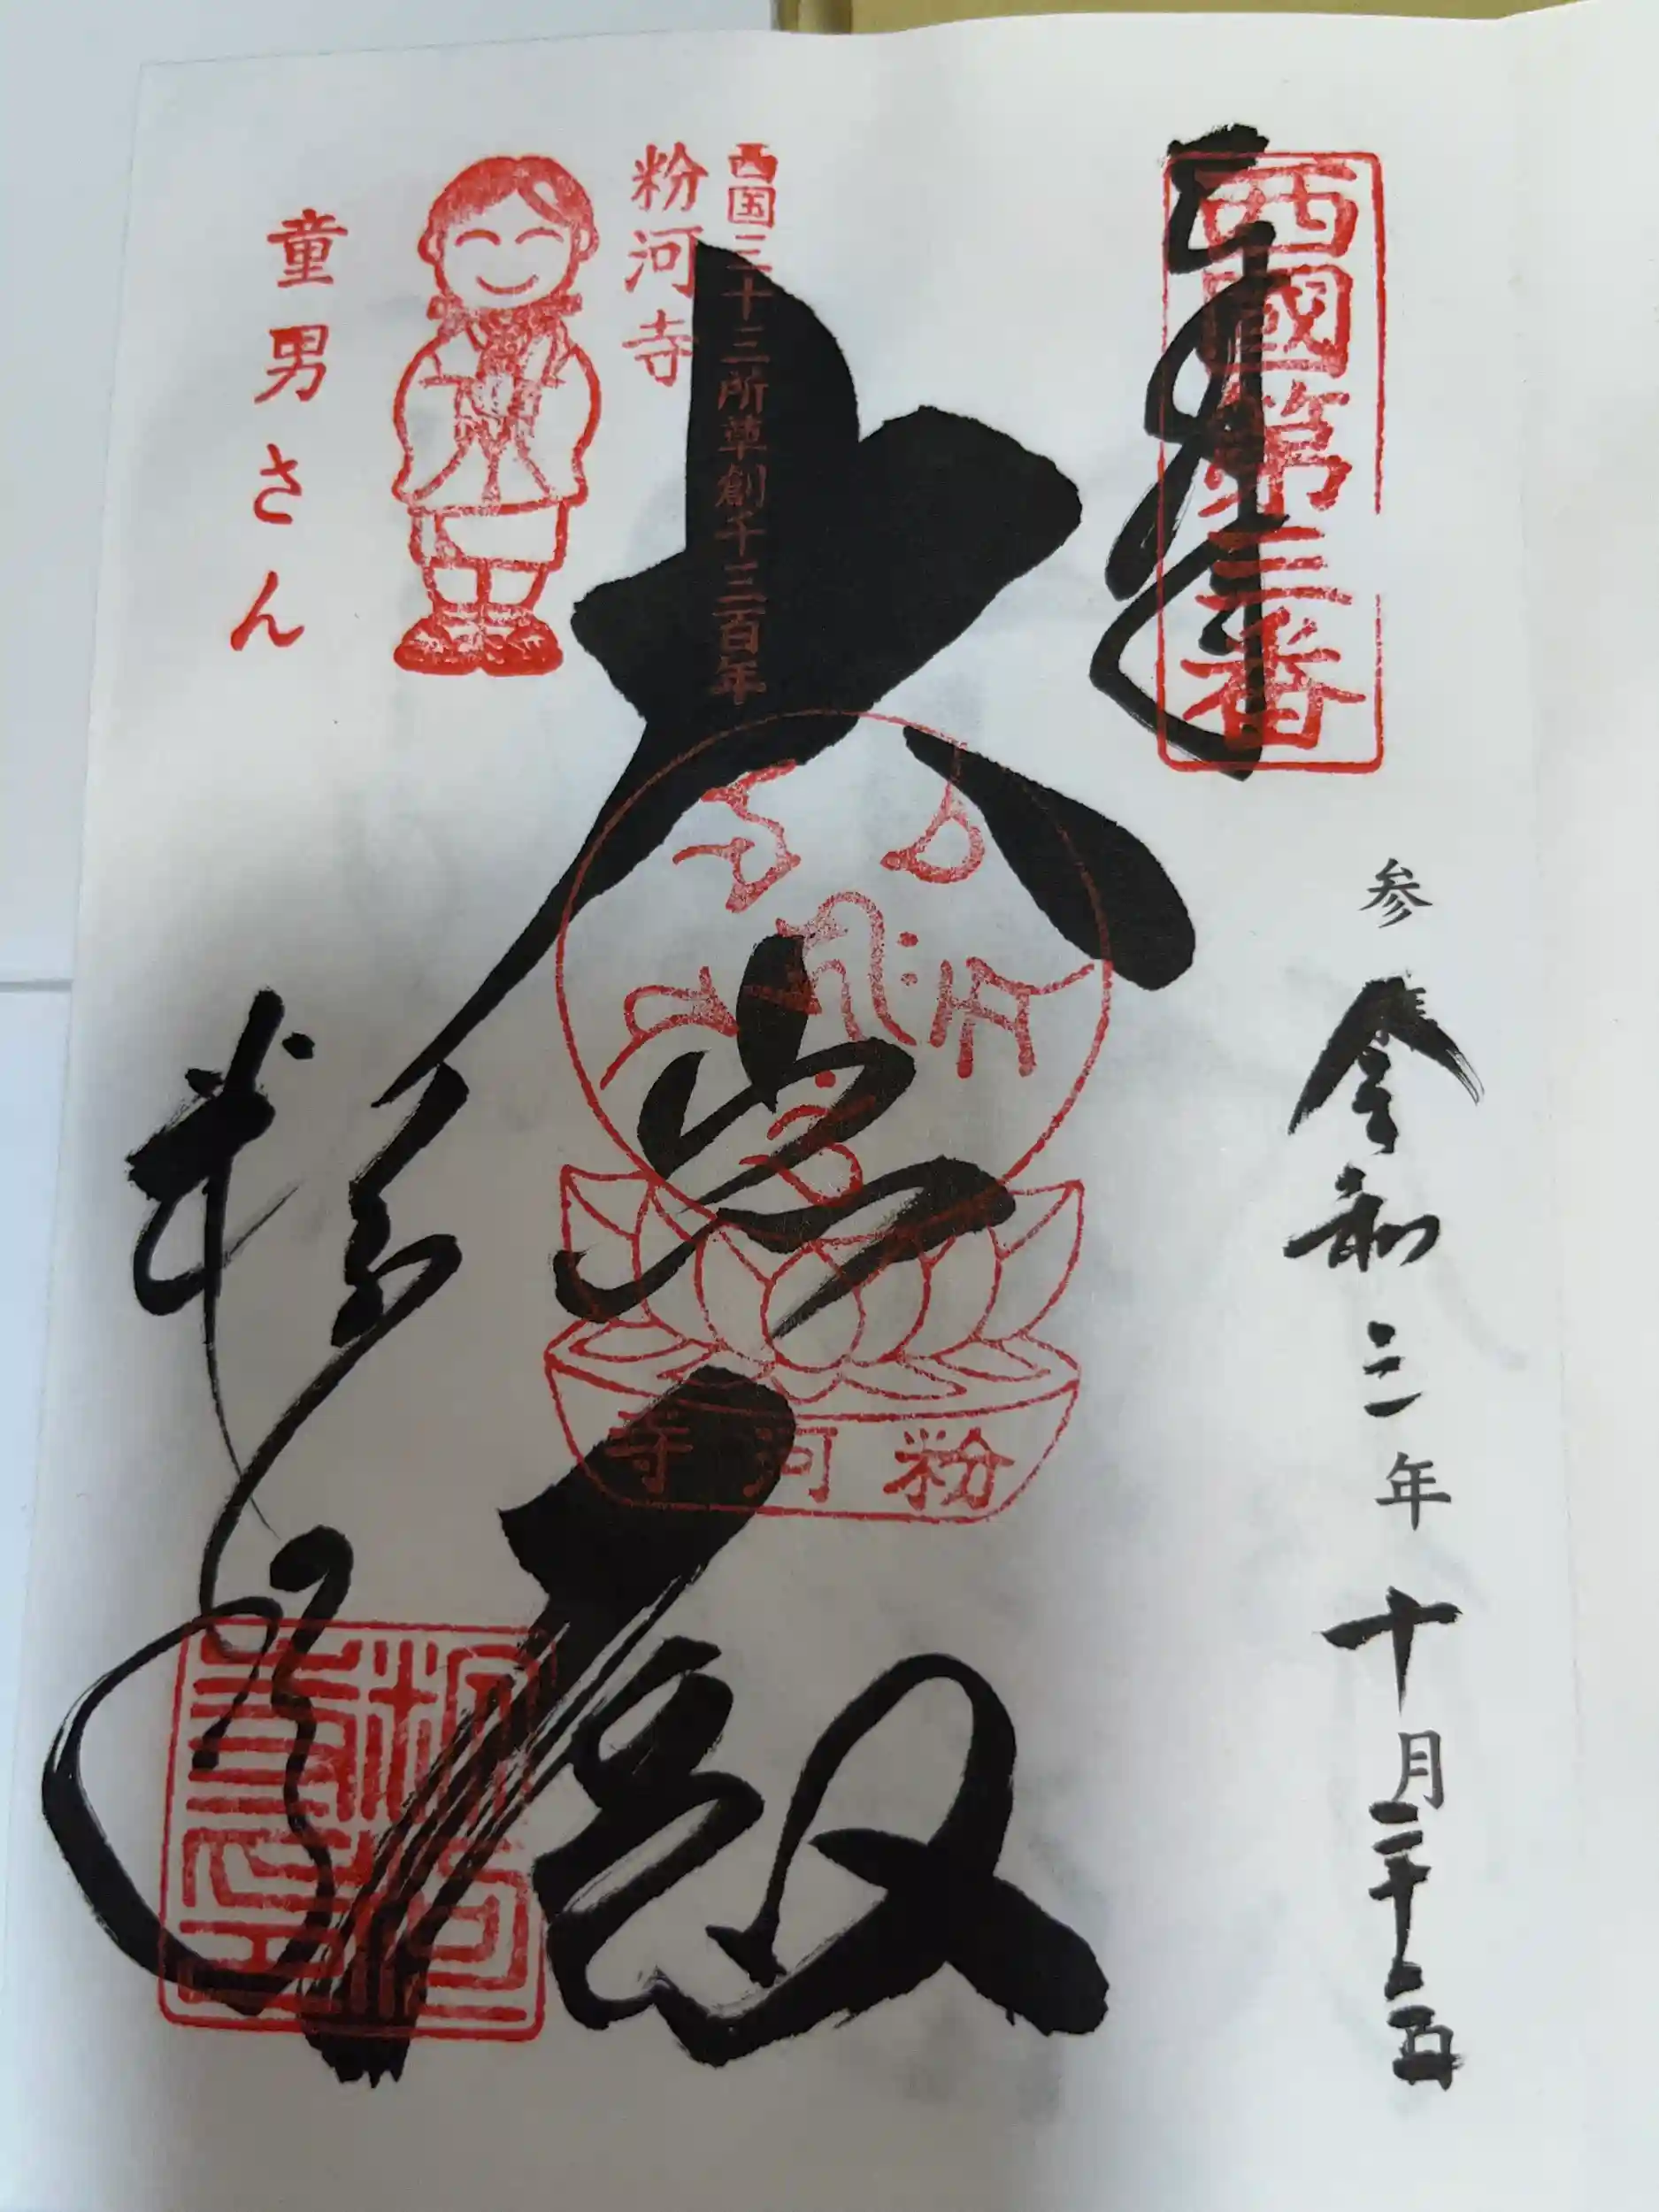 奉拝
西國第三番
参
令和三年十月二十五
大悲殿
西国三十三所草創千三百年
粉河寺
童男さん
粉河寺
粉河寺
粉河寺印